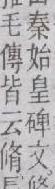 秦始皇碑文
毛傳皆云脩